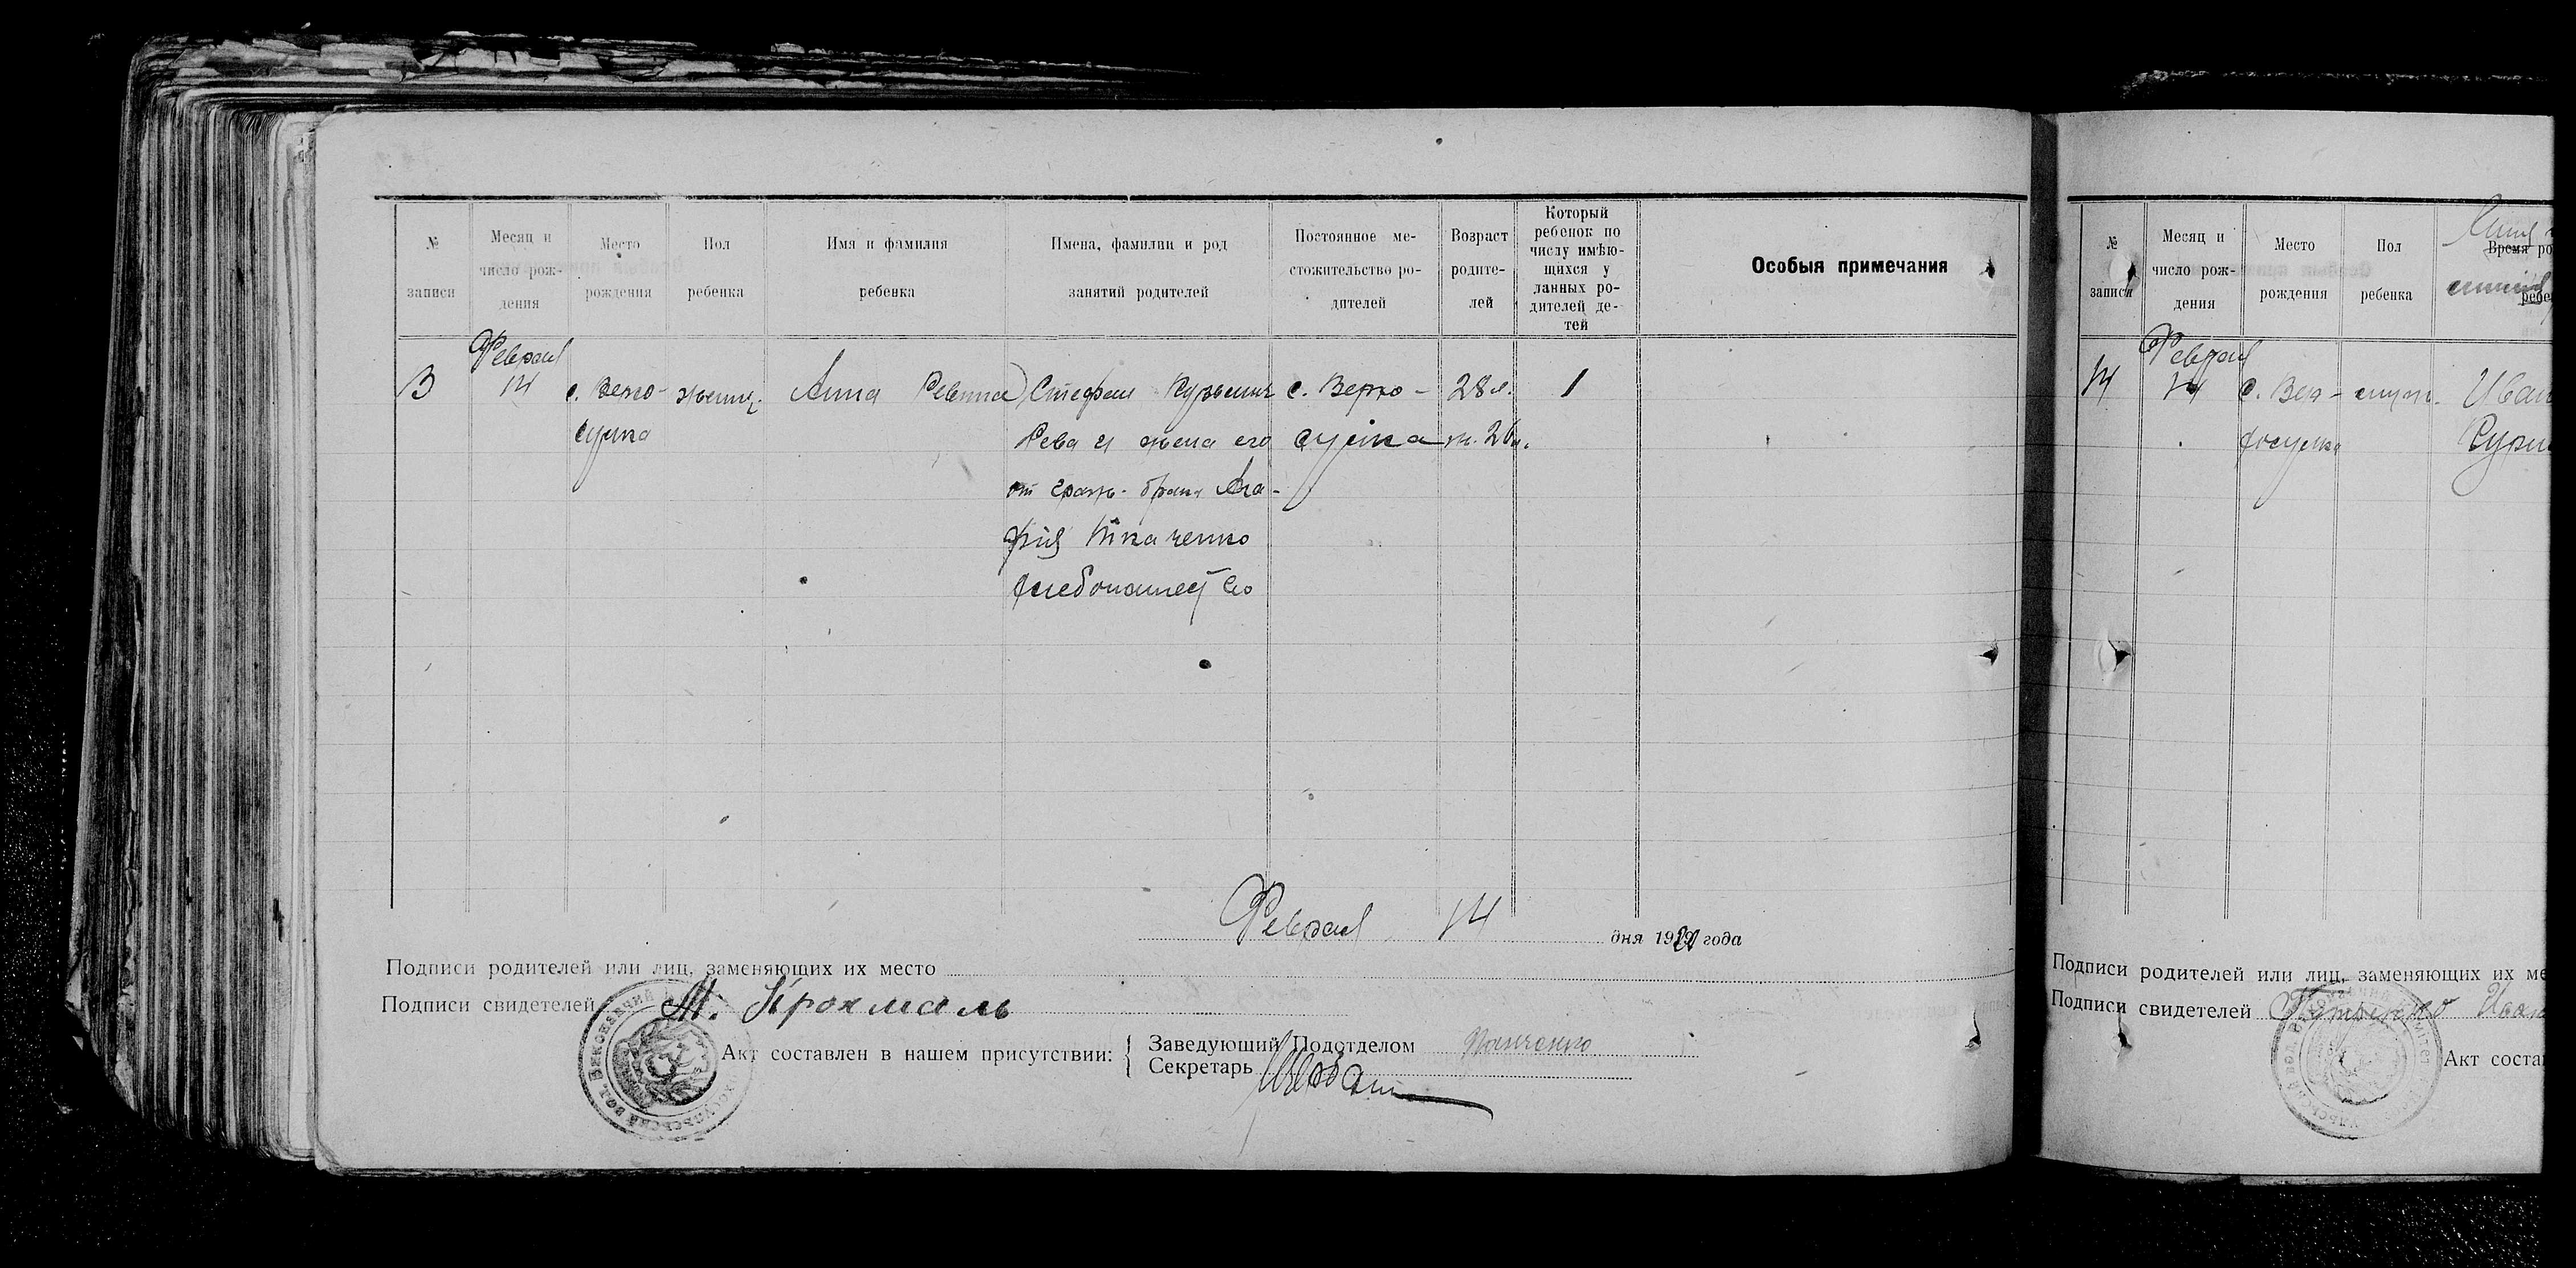 № записи
Месяц и число рож-дения
Место рождения
Пол ребенка
Имя и фамилия ребенка
Имена, фамилии и род занятий родителей
Постоянное ме-стожительство ро-дителей
Возраст родите-лей
Который ребенок по числу имѣю-щихся у данных ро-дителей де-тей
Особыя примечания
Феврал
14
с. Верхо- женск. Анна Стефан с. Верхо- 28 л. 1
сулка Рева и жена его сулка ж. 26 л.
от граж. брака Ага-
фия Ткаченко
хлебопашество
Феврал 14 дня 19 года
Подписи родителей или лиц, заменяющих их место
Подписи свидетелей М. Крохмаль
Акт составлен в нашем присутствии:
Заведующий Подотделом
Секретарь
№ записи
Месяц и число рож-дения
Место рождения
Пол ребенка
Время ро
ребе
Феврал
14 14 с. Вер-
хосулка
Иван
Подписи родителей или лиц, заменяющих их ме
Подписи свидетелей
Акт состав